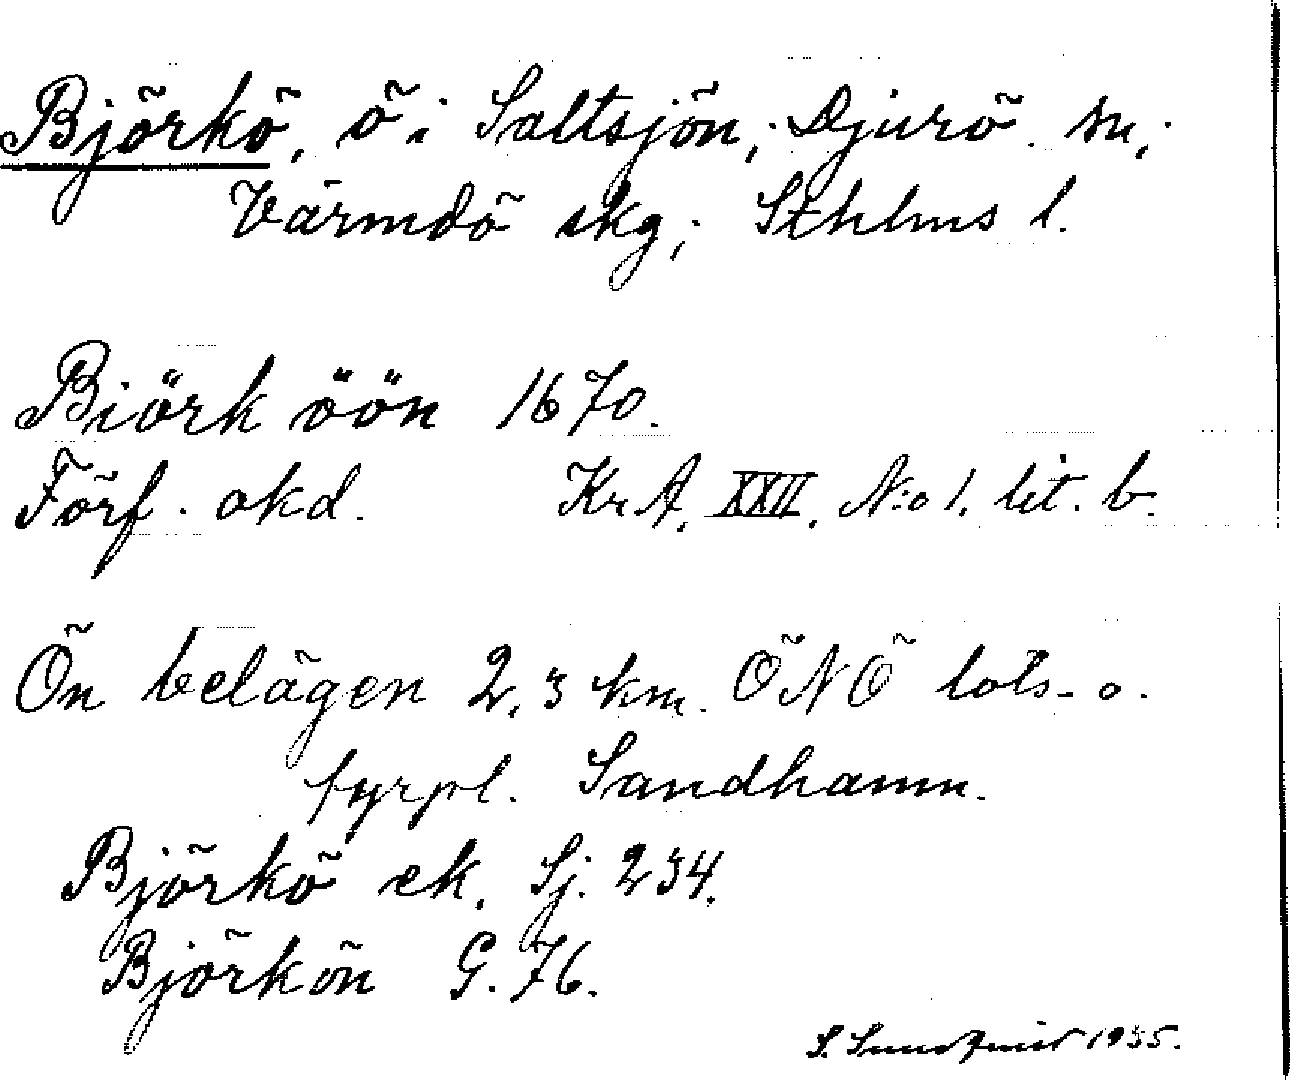 Björkö, ö i Saltsjön, Djurö sn,
Värmdö skg, Sthlms l.
Biörk öön 1670.
Förf. okd. KrA, XXII, N:o 1. lit. b.
Ön belägen 2,3 km. ÖNÖ lots- o.
fyrpl. Sandhamn.
Björkö ek. Sj. 234.
Björkön G. 76.
S. Sundquist 1935.